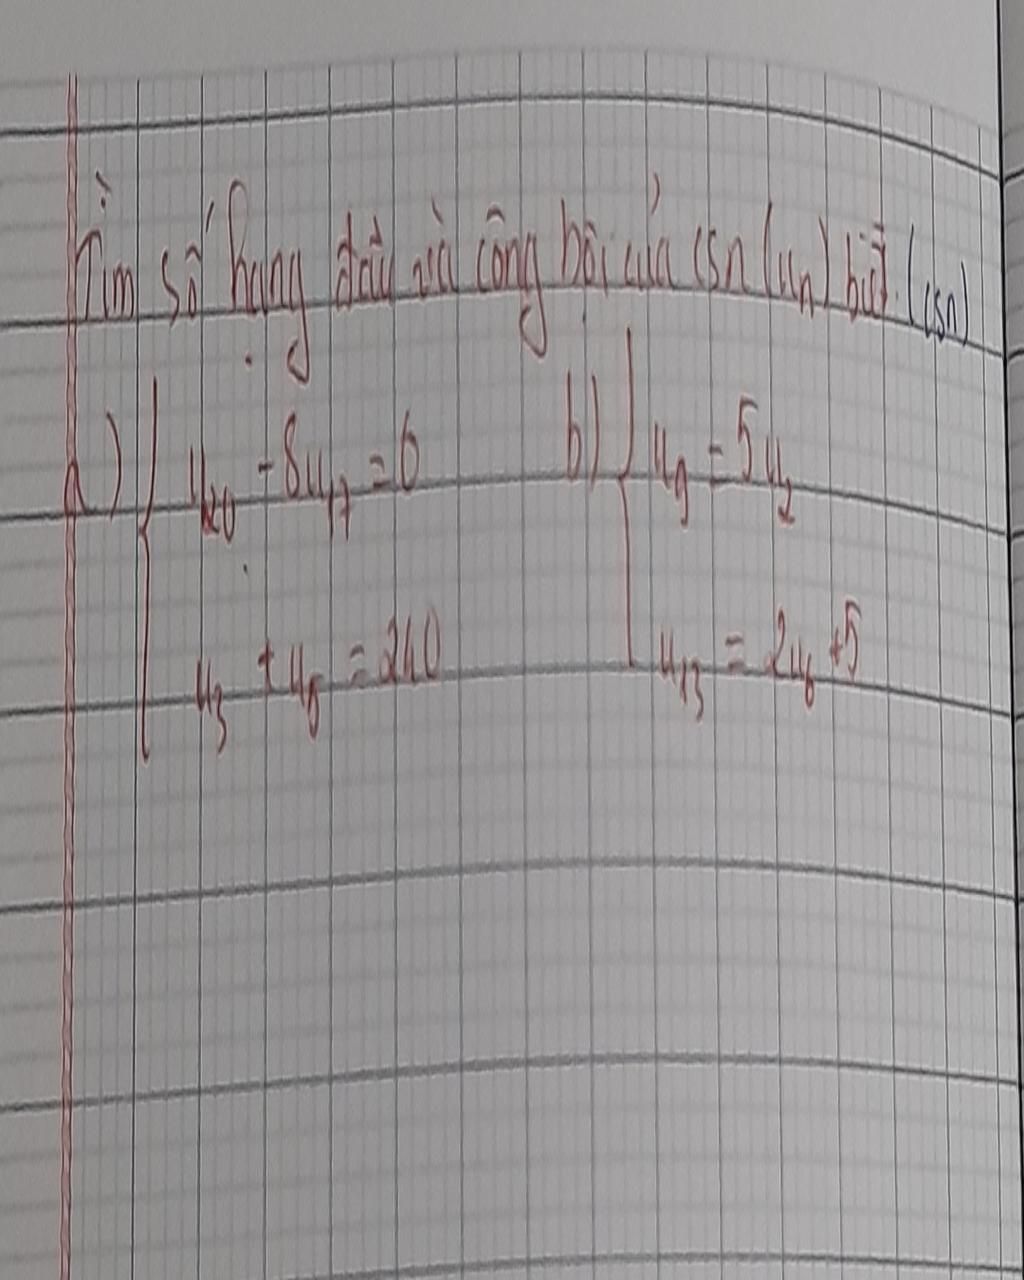 Tìm số hạng đầu và công bội của csn (un) biết. (csn)
a) { u20 - 8u17 = 0 b) { u9 = 5u2
u3 + u5 = 240 u13 = 2u6 + 5